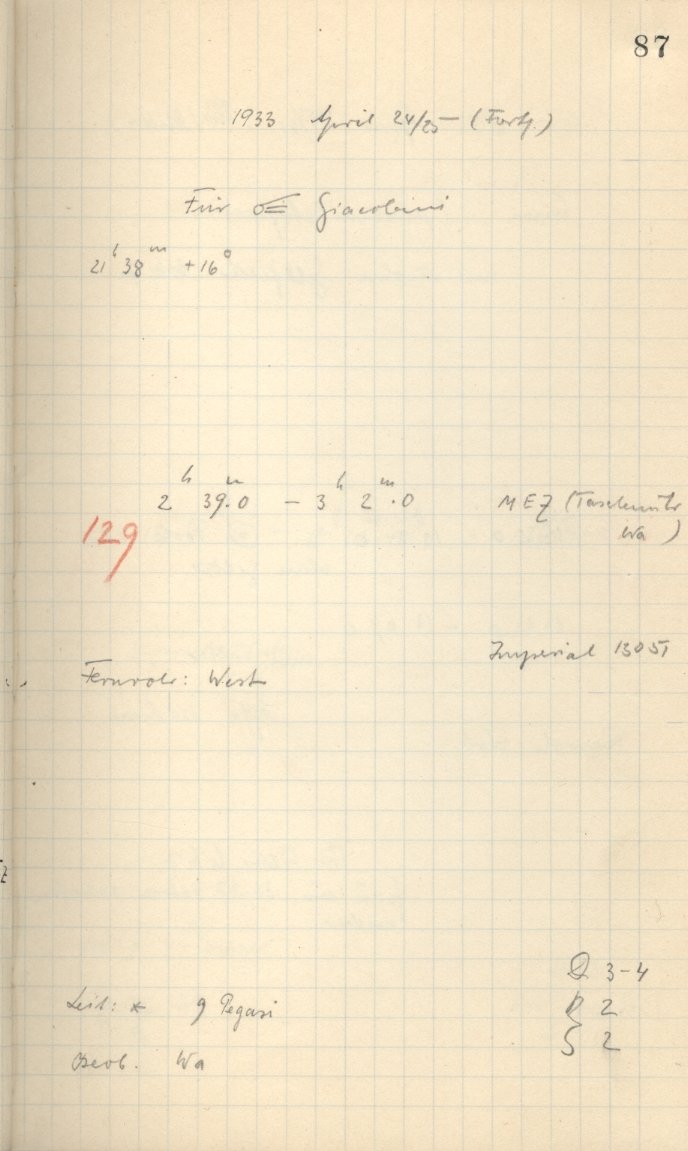 87
1933 April 24/25 (Forts.)
Für ☄ Giacobini
21ʰ 38ᵐ +16°
2ʰ 39ᵐ.0 – 3ʰ 2ᵐ.0 MEZ (Taschenuhr
129 Wa)
Imperial 1305
Fernrohr: West
Q 3-4
Leit: * 9 Pegasi R 2
S 2
Beob. Wa